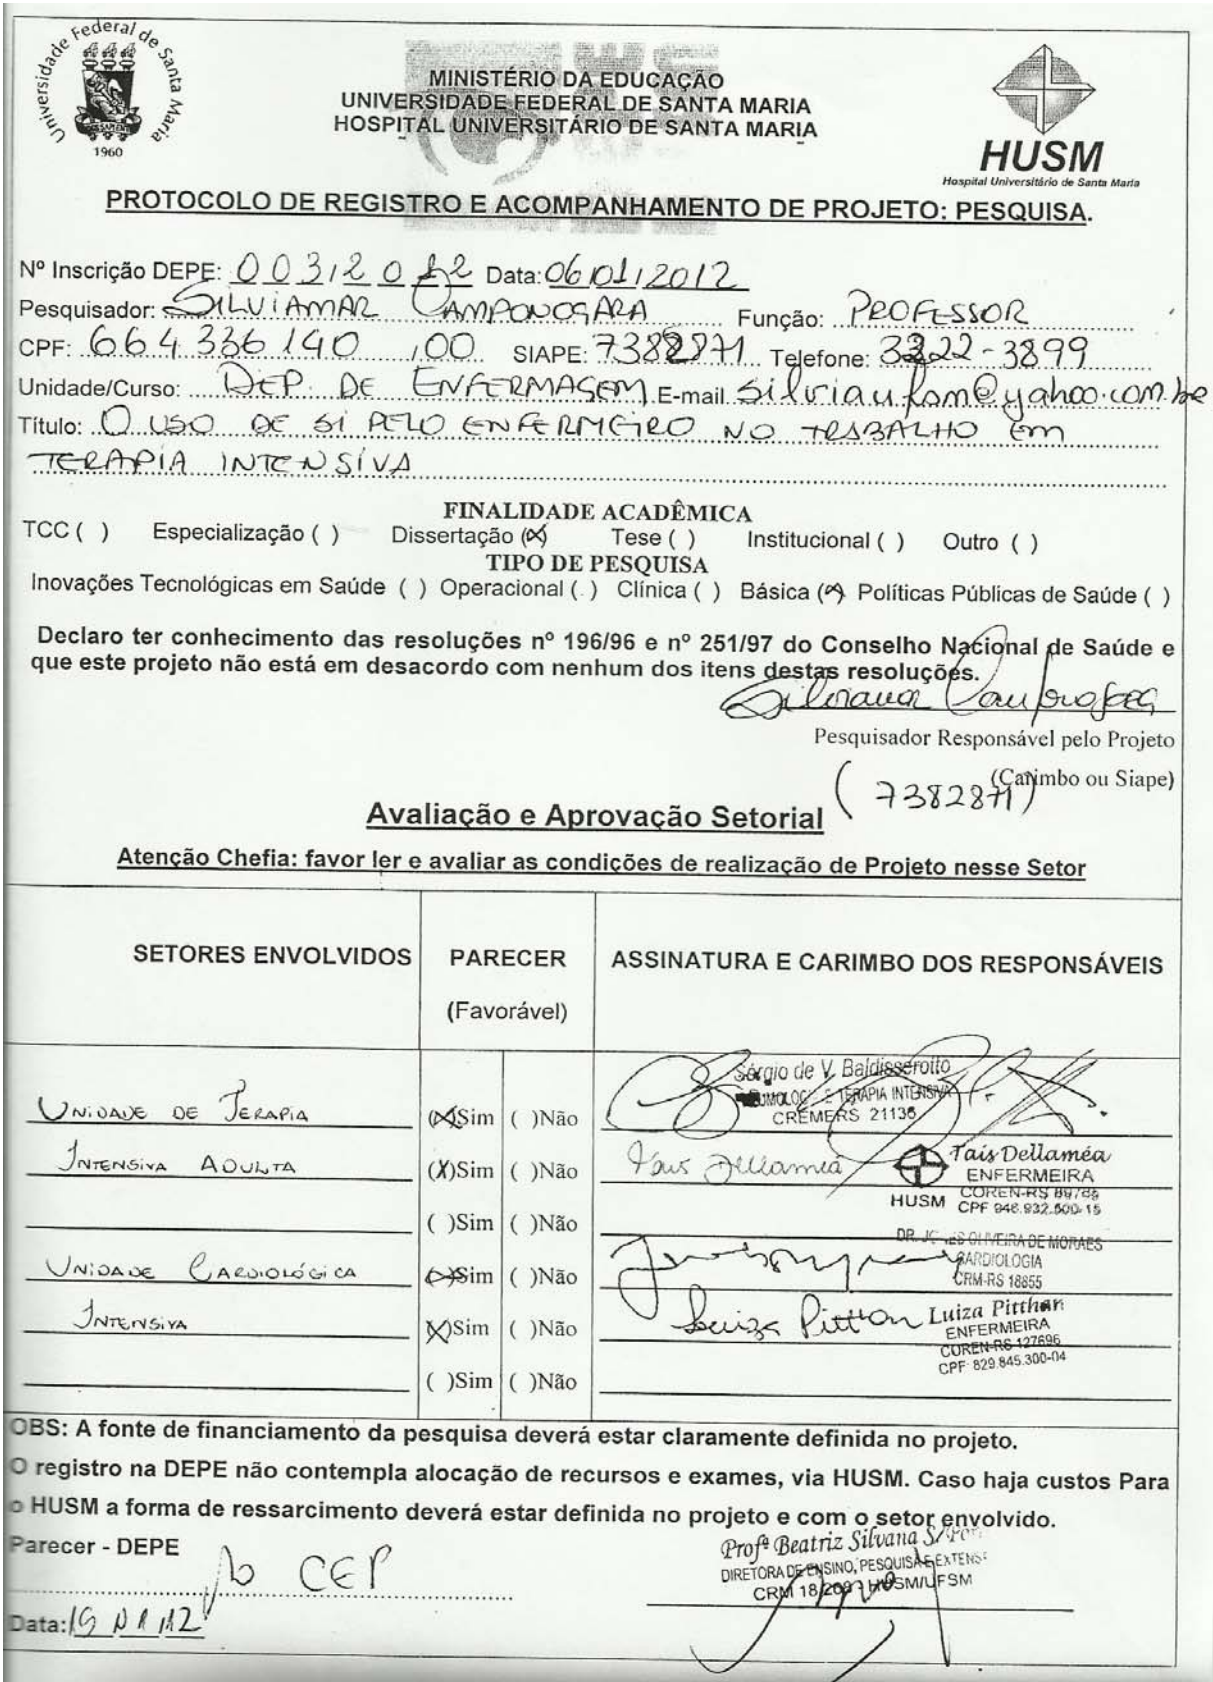 Universidade Federal de Santa Maria
1960
MINISTÉRIO DA EDUCAÇÃO
UNIVERSIDADE FEDERAL DE SANTA MARIA
HOSPITAL UNIVERSITÁRIO DE SANTA MARIA
HUSM
Hospital Universitário de Santa Maria
PROTOCOLO DE REGISTRO E ACOMPANHAMENTO DE PROJETO: PESQUISA.
Nº Inscrição DEPE: 003/2012 Data: 06/01/2012
Pesquisador: SILVIAMAR CAMPONOGARA Função: PROFESSOR
CPF: 664 336 140 , 00 SIAPE: 7382871 Telefone: 3222-3899
Unidade/Curso: DEP. DE ENFERMAGEM E-mail silviaufsm@yahoo.com.br
Título: O USO DE SI PELO ENFERMEIRO NO TRABALHO EM
TERAPIA INTENSIVA
FINALIDADE ACADÊMICA
TCC ( ) Especialização ( ) Dissertação (X) Tese ( ) Institucional ( ) Outro ( )
TIPO DE PESQUISA
Inovações Tecnológicas em Saúde ( ) Operacional ( ) Clínica ( ) Básica (X) Políticas Públicas de Saúde ( )
Declaro ter conhecimento das resoluções nº 196/96 e nº 251/97 do Conselho Nacional de Saúde e
que este projeto não está em desacordo com nenhum dos itens destas resoluções.
Pesquisador Responsável pelo Projeto
(Carimbo ou Siape)
(7382871)
Avaliação e Aprovação Setorial
Atenção Chefia: favor ler e avaliar as condições de realização de Projeto nesse Setor
SETORES ENVOLVIDOS PARECER ASSINATURA E CARIMBO DOS RESPONSÁVEIS
(Favorável)
Sérgio de V. Baldisserotto
E TERAPIA INTENSIVA
CREMERS 21136
UNIDADE DE TERAPIA (X)Sim ( )Não
INTENSIVA ADULTA (X)Sim ( )Não Tais Dellaméa
Taís Dellaméa
ENFERMEIRA
HUSM COREN-RS
CPF 948.932.500-15
( )Sim ( )Não
OLIVEIRA DE MORAES
CARDIOLOGIA
CRM-RS 18855
UNIDADE CARDIOLÓGICA (X)Sim ( )Não
INTENSIVA (X)Sim ( )Não Luiza Pitthan
Luiza Pitthan
ENFERMEIRA
COREN-RS 127696
CPF 829.845.300-04
( )Sim ( )Não
OBS: A fonte de financiamento da pesquisa deverá estar claramente definida no projeto.
O registro na DEPE não contempla alocação de recursos e exames, via HUSM. Caso haja custos Para
o HUSM a forma de ressarcimento deverá estar definida no projeto e com o setor envolvido.
Parecer - DEPE
CEP
Profª Beatriz Silvana
DIRETORA DE ENSINO, PESQUISA E EXTENS
HUSM/UFSM
Data: 19 01 12